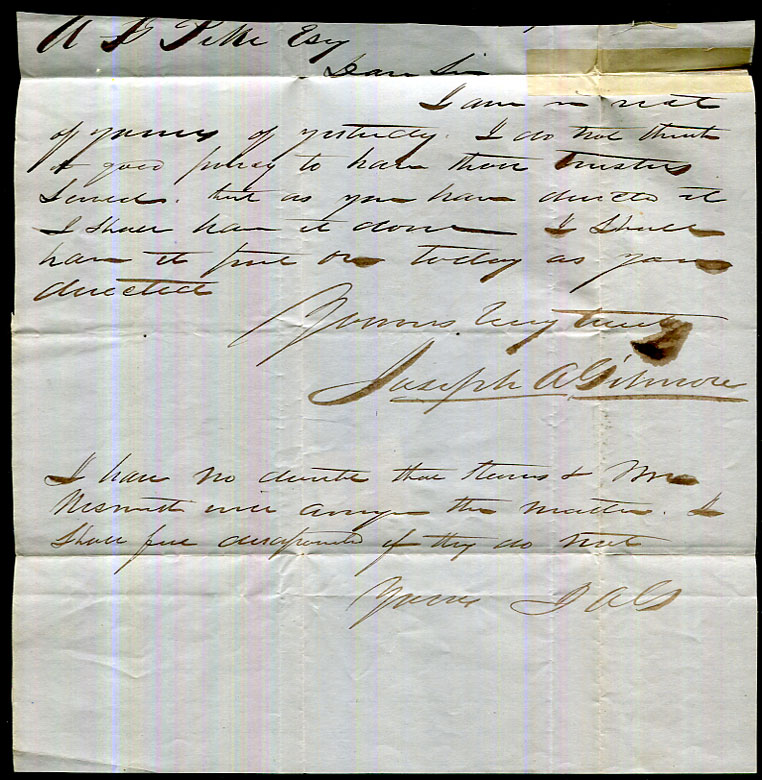 A S Pike Esq
Dear Sir
I am in rect
of yours of yesterday. I do not think
it good policy to have those trustees
sued. but as you have directed it
I shall have it done I shall
have it put on today as you
directed
Yours very truly
Joseph A Gilmore
I have no doubt that & Mr
Nesmith will arrange the matter. I
shall feel disappointed if they do not
Yours J A G